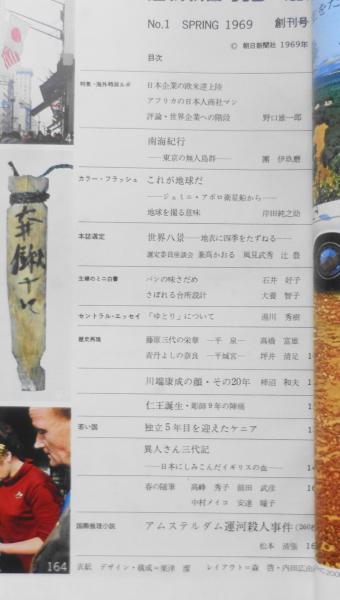 No.1 SPRING 1969 創刊号
© 朝日新聞社 1969年
目次
特集・海外特派ルポ 日本企業の欧米逆上陸
アフリカの日本人商社マン
評論・世界企業への階段 野口雄一郎
南海紀行
——東京の無人島群—— 團 伊玖磨
カラー・フラッシュ これが地球だ
——ジェミニ・アポロ衛星船から——
地球を撮る意味 岸田純之助
本誌選定 世界八景——地表に四季をたずねる——
選定委員座談会 兼高かおる 風見武秀 辻 豊
主婦のミニ白書 パンの味さだめ 石井 好子
さぼれる台所設計 犬養 智子
セントラル・エッセイ 「ゆとり」について 湯川 秀樹
歴史再現 藤原三代の栄華 —平 泉— 高橋 富雄
青丹よしの奈良 —平城宮— 坪井 清足
川端康成の顔・その20年 柿沼 和夫
仁王誕生・彫師9年の陣痛
若い国 独立5年目を迎えたケニア
異人さん三代記
——日本にしみこんだイギリスの血——
春の随筆 高峰 秀子 飯田 武彦
中村メイコ 安達 瞳子
国際推理小説 アムステルダム運河殺人事件
松本 清張
164
表紙 デザイン・構成=粟津 潔 レイアウト=森 啓・内田広由